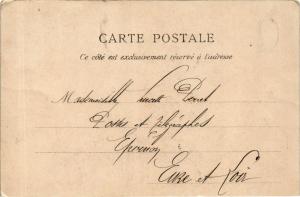 CARTE POSTALE
Ce côté est exclusivement réservé à l'adresse
Mademoiselle
Postes et télégraphes
Epernon
Eure et Loir